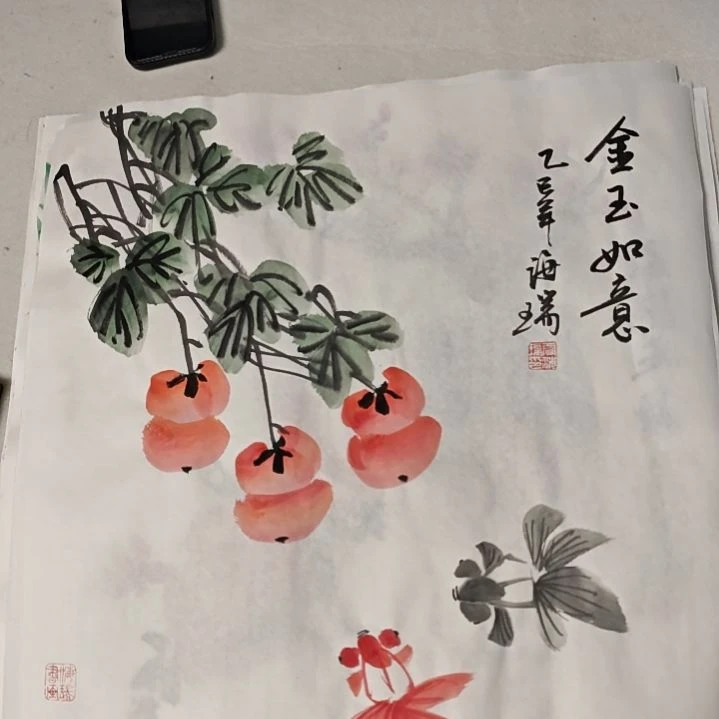 金玉如意
乙巳年 海瑞